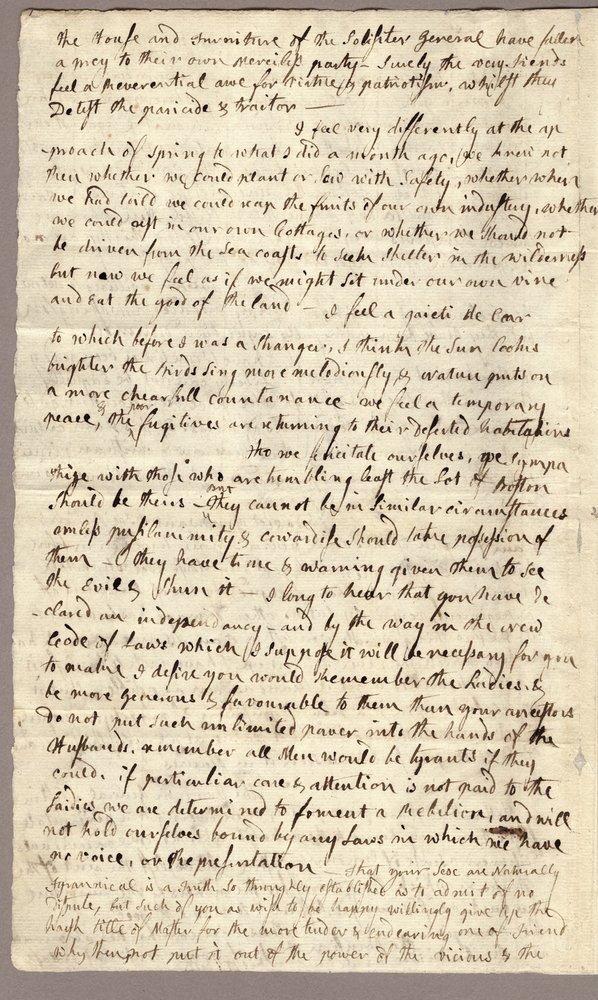 the House and Furniture of the Soliciter General have fallen
a prey to their own merciless party— Surely the very Fiends
feel a Reverential awe for virtue & patriotism, whilst they
Detest the paricide & traitor—
I feel very differently at the ap
proach of Spring to what I did a month ago, we knew not
then whether we could plant or sow with Safety, whether when
we had toild we could reap the fruits of our own industery, whether
we could rest in our own Cottages, or whether we should not
be driven from the Sea coasts to seek shelter in the wilderness
but now we feel as if we might sit under our own vine
and eat the good of the land— I feel a gaieti de Coar
to which before I was a stranger, I think the Sun looks
brighter the Birds sing more melodiously, & nature puts on
a more chearfull countanance we feel a temporary
peace, & the poor fugitives are returning to their deserted habitations
Tho we felicitate ourselves, we Sympa
thize with those who are trembling least the Lot of Boston
should be theirs— but they cannot be in Similar circumstances
unless pusilanimity & cowardise should take possession of
them— they have time & warning given them to see
the Evil & Shun it— I long to hear that you have de
clared an independancy— and by the way in the new
Code of Laws which I suppose it will be necessary for you
to make I desire you would Remember the Ladies, &
be more generous & favourable to them than your ancestors
Do not put such unlimited power into the hands of the
Husbands. remember all Men would be tyrants if they
could. if perticuliar care & attention is not paid to the
Laidies we are determined to foment a Rebelion, and will
not hold ourselves bound by any Laws in which we have
no voice, or Representation That your Sex are Naturally
Tyrannical is a Truth so thoroughly established as to admit of no
dispute, but such of you as wish to be happy willingly give up the
harsh title of Master for the more tender & endearing one of Friend
why then, not put it out of the power of the vicious & the